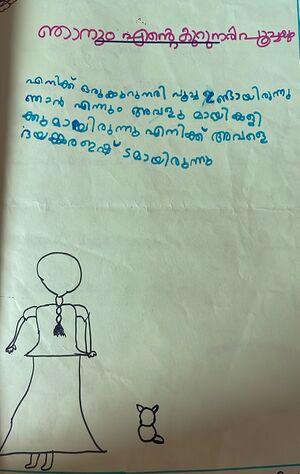 ഞാനും എന്റെ കുറുനരി പൂച്ചയും
എനിക്ക് ഒരു കുറുനരി പൂച്ച ഉണ്ടായിരുന്നു
ഞാൻ എന്നും അവളു മായി കളി
ക്കുമായിരുന്നു എനിക്ക് അവളെ
ഭയങ്കര ഇഷ്ടമായിരുന്നു